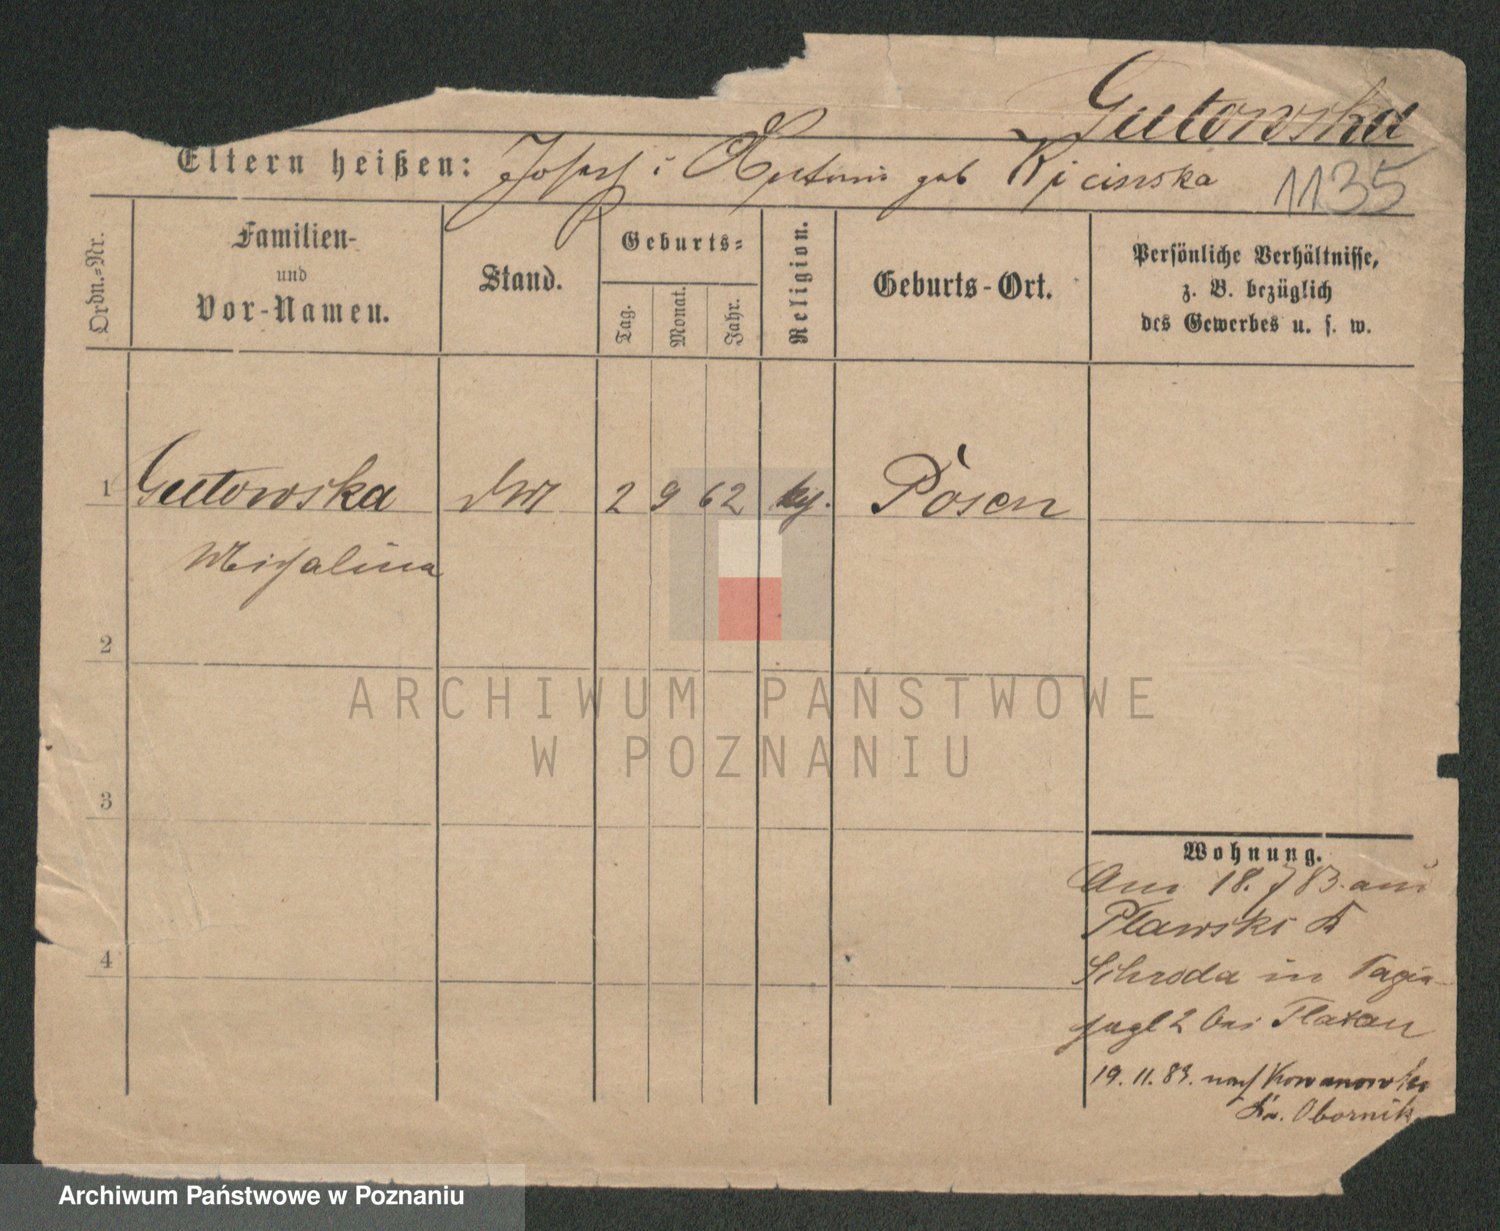 Gutowska
Eltern heißen: Josef i geb
1135
Ordn.=Nr.
Familien-
und
Vor-Namen.
Stand.
Geburts=
Tag.
Monat.
Jahr.
Religion.
Geburts-Ort.
Persönliche Verhältnisse,
z. B. bezüglich
des Gewerbes u. s. w.
1 Gutowska 2 9 62 Posen
Michalina
2
3
4
Wohnung.
Am 18. 7 83 aus
Plawski
Schroda in
2 bei
19. 11. 83. nach Kowanowko
Kr. Obornik
ARCHIWUM PAŃSTWOWE
W POZNANIU
Archiwum Państwowe w Poznaniu